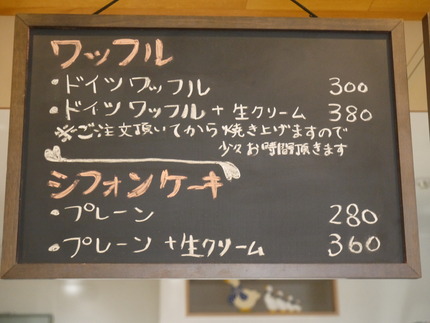 ワッフル
・ドイツワッフル 300
・ドイツワッフル+生クリーム 380
※ご注文頂いてから焼き上げますので
少々お時間頂きます
シフォンケーキ
・プレーン 280
・プレーン+生クリーム 360